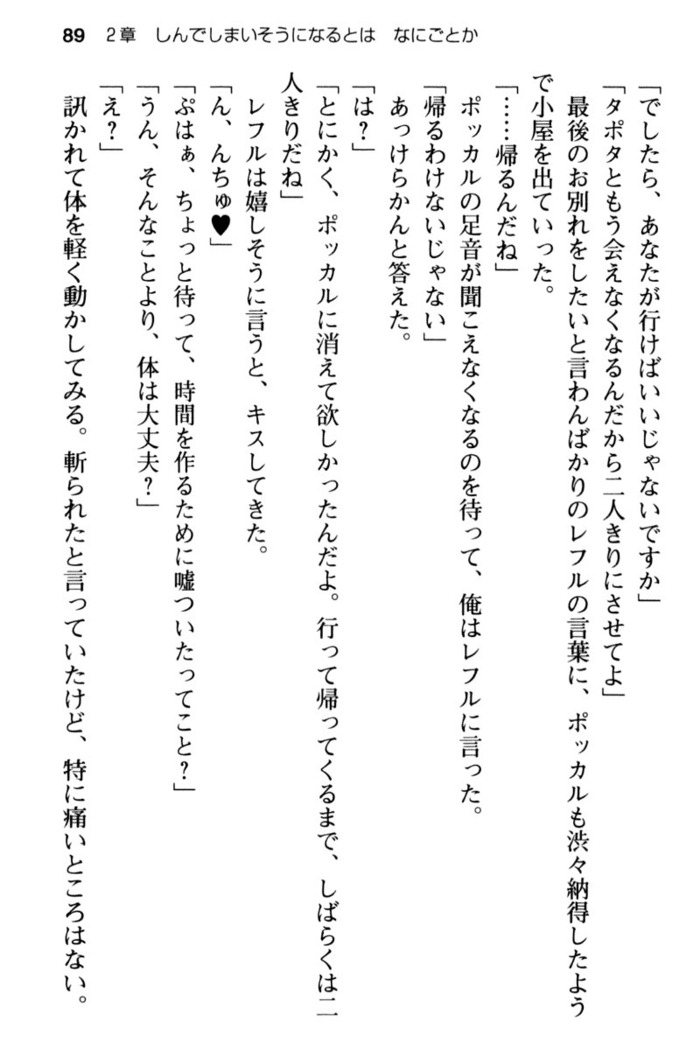 89 2章 しんでしまいそうになるとは なにごとか
「でしたら、あなたが行けばいいじゃないですか」
「タポタともう会えなくなるんだから二人きりにさせてよ」
最後のお別れをしたいと言わんばかりのレフルの言葉に、ポッカルも渋々納得したよう
で小屋を出ていった。
「……帰るんだね」
ポッカルの足音が聞こえなくなるのを待って、俺はレフルに言った。
「帰るわけないじゃない」
あっけらかんと答えた。
「は?」
「とにかく、ポッカルに消えて欲しかったんだよ。行って帰ってくるまで、しばらくは二
人きりだね」
レフルは嬉しそうに言うと、キスしてきた。
「ん、んちゅ♥」
「ぷはぁ、ちょっと待って、時間を作るために嘘ついたってこと?」
「うん、そんなことより、体は大丈夫?」
「え?」
訊かれて体を軽く動かしてみる。斬られたと言っていたけど、特に痛いところはない。